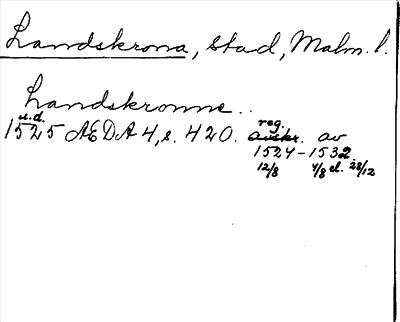 Landskrona, stad, Malm. l.
Landskronne..
u.d. reg.
1525 AEDA 4, s. 420. avskr. av
1524-1532.
12/8 4/8 el. 28/12